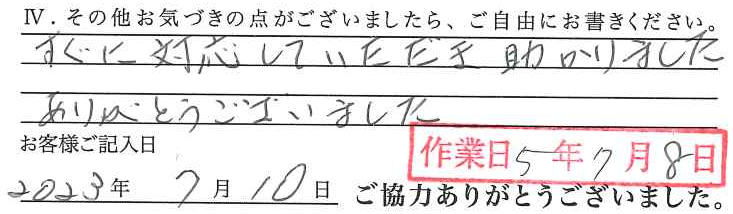 Ⅳ．その他お気づきの点がございましたら、ご自由にお書きください。
すぐに対応していただき助かりました
ありがとうございました
お客様ご記入日
作業日5年7月8日
2023年 7月10日 ご協力ありがとうございました。